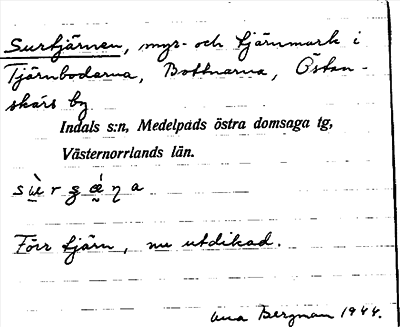 Surtjärnen, myr- och tjärnmark i
Tjärnbodarna, Bottnarna, Östan-
skärs by
Indals s:n, Medelpads östra domsaga tg,
Västernorrlands län.
Förr tjärn, nu utdikad.
Ana Bergman 1944.